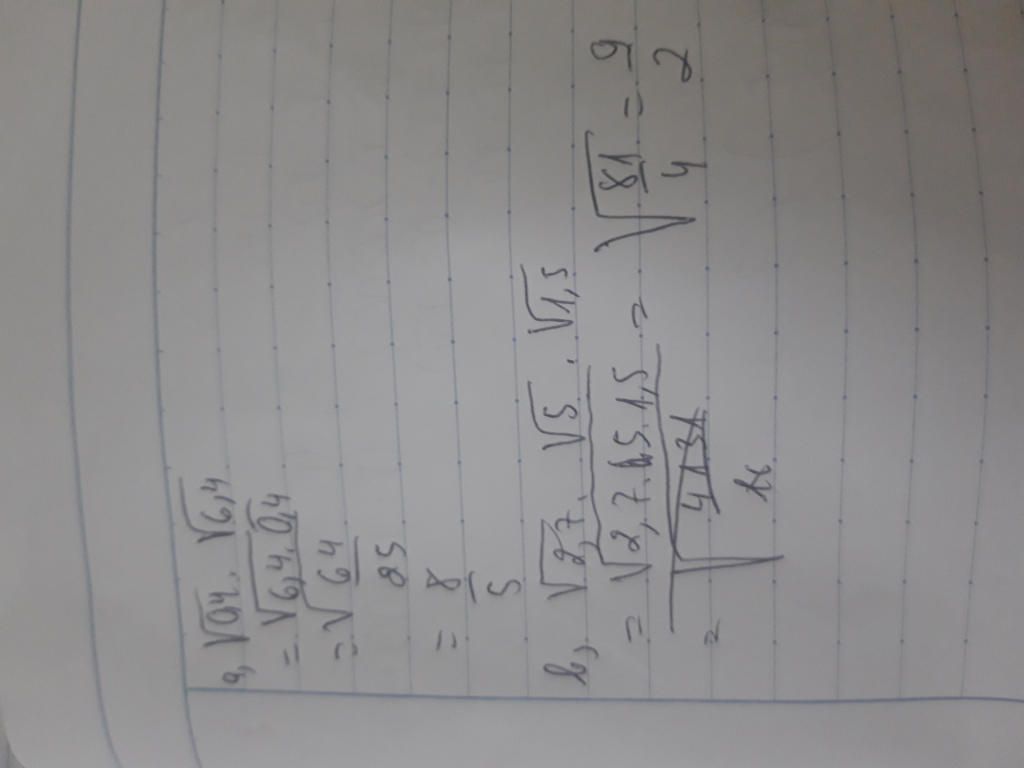 a, √0,4 . √6,4
= √6,4.0,4
= √64/25
= 8/5
b, √2,7 . √5 . √1,5
= √2,7.5.1,5 = √81/4 = 9/2
=